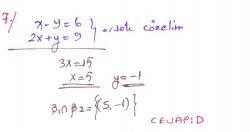 7/ x-y=6 } ortak çözelim
2x+y=9
3x=15
x=5 y=-1
β₁∩β₂={(5,-1)}
CEVAP:D